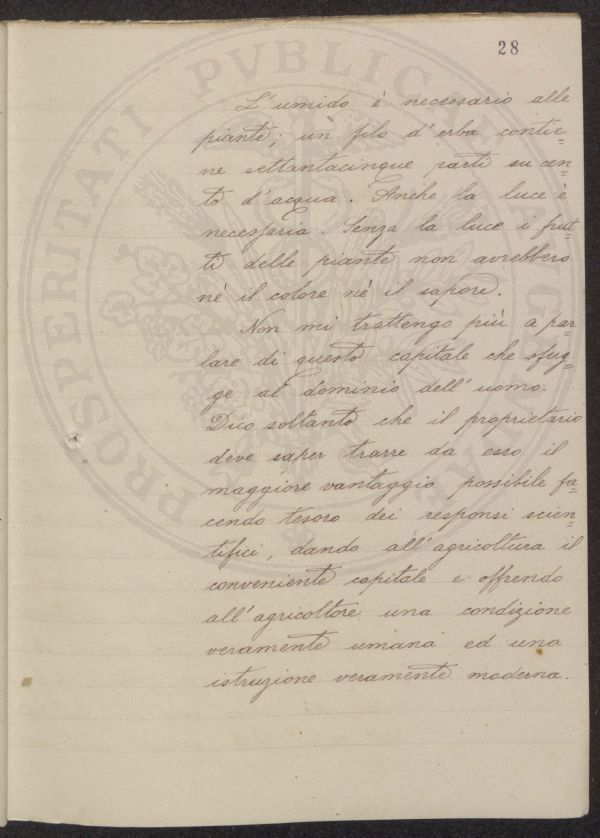 28
L'umido è necessario alle
piante; un filo d'erba contie=
ne settantacinque parti su cen=
to d'acqua. Anche la luce è
necessaria. Senza la luce i frut=
ti delle piante non avrebbero
nè il colore nè il sapore.
Non mi trattengo più a par=
lare di questo capitale che sfug=
ge al dominio dell'uomo.
Dico soltanto che il proprietario
deve saper trarre da esso il
maggiore vantaggio possibile fa=
cendo tesoro dei responsi scien=
tifici, dando all'agricoltura il
conveniente capitale e offrendo
all'agricoltore una condizione
veramente umana ed una
istruzione veramente moderna.
PROSPERITATI PVBLICAE